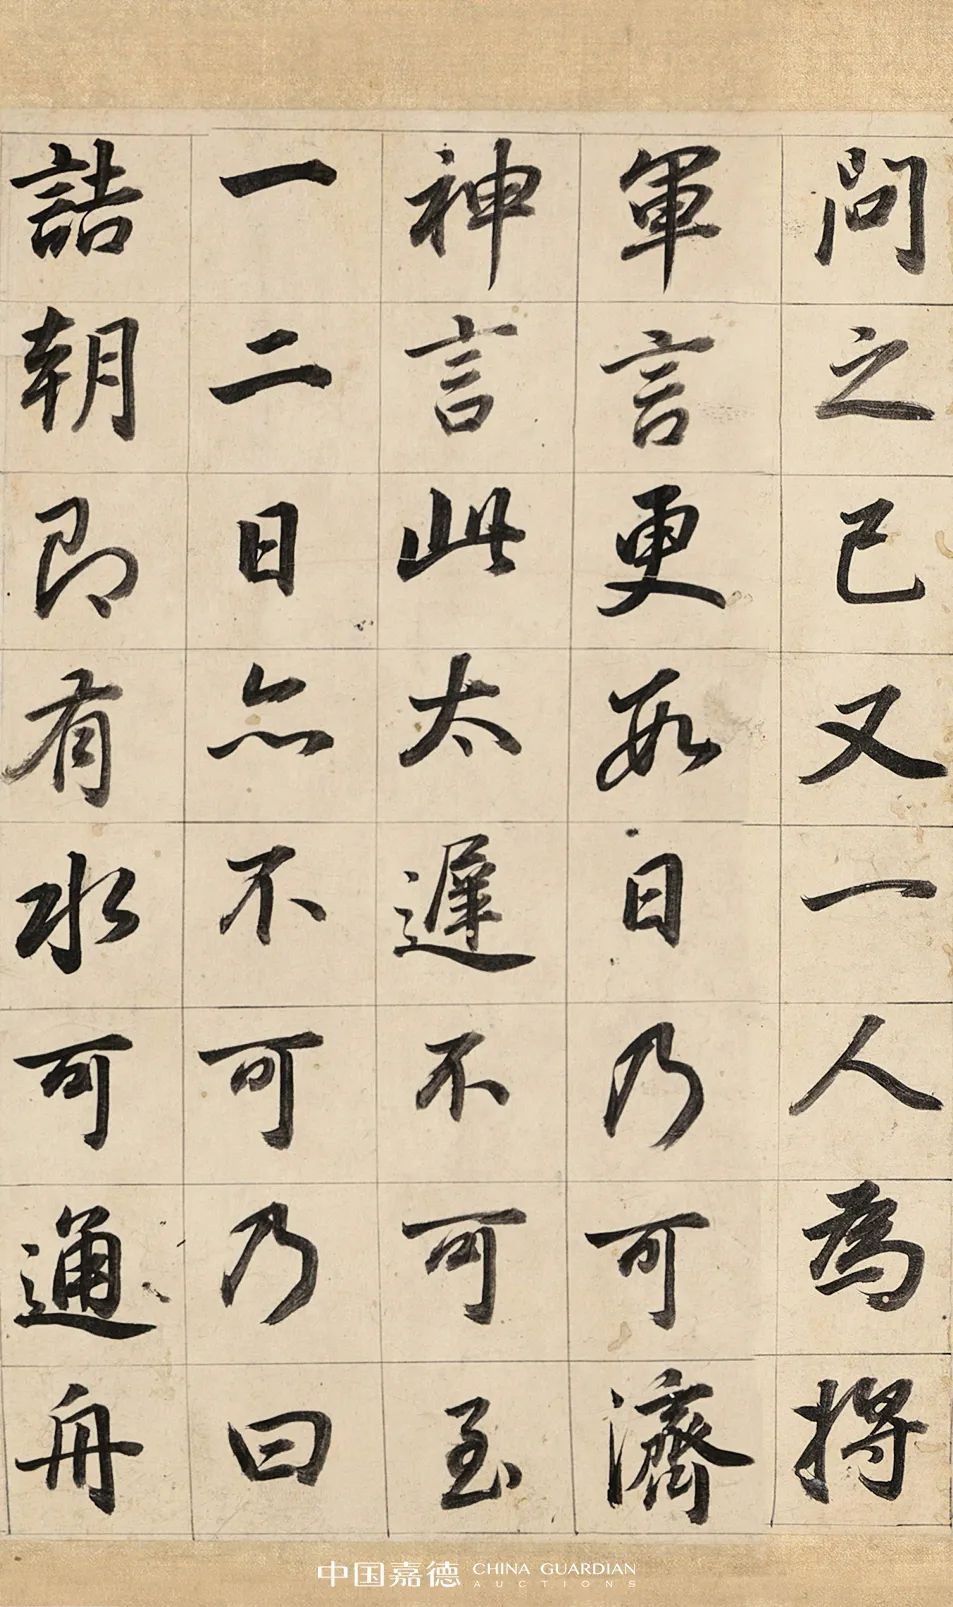 問之已又一人為將
軍言更數日乃可濟
神言此太遲不可至
一二日亦不可乃曰
詰朝即有水可通舟
中国嘉德 CHINA GUARDIAN
AUCTIONS